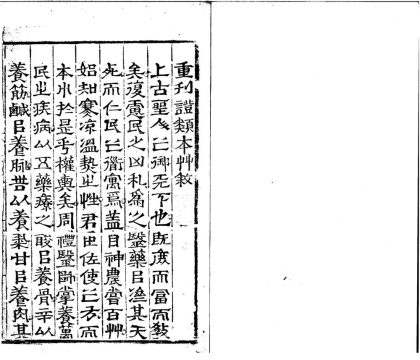 重刊證類本艸敘
上古聖人之御天下也既庶而富而教
矣復慮民之凶札爲之醫藥㠯濟其夭
死而仁民之術寓焉蓋自神農嘗百艸
始知寒凉溫熱之性君臣佐使之方而
本艸於是乎權輿矣周禮醫師掌養萬
民之疾病以五藥療之酸㠯養骨辛以
養筋鹹㠯養脈苦以養氣甘㠯養肉其